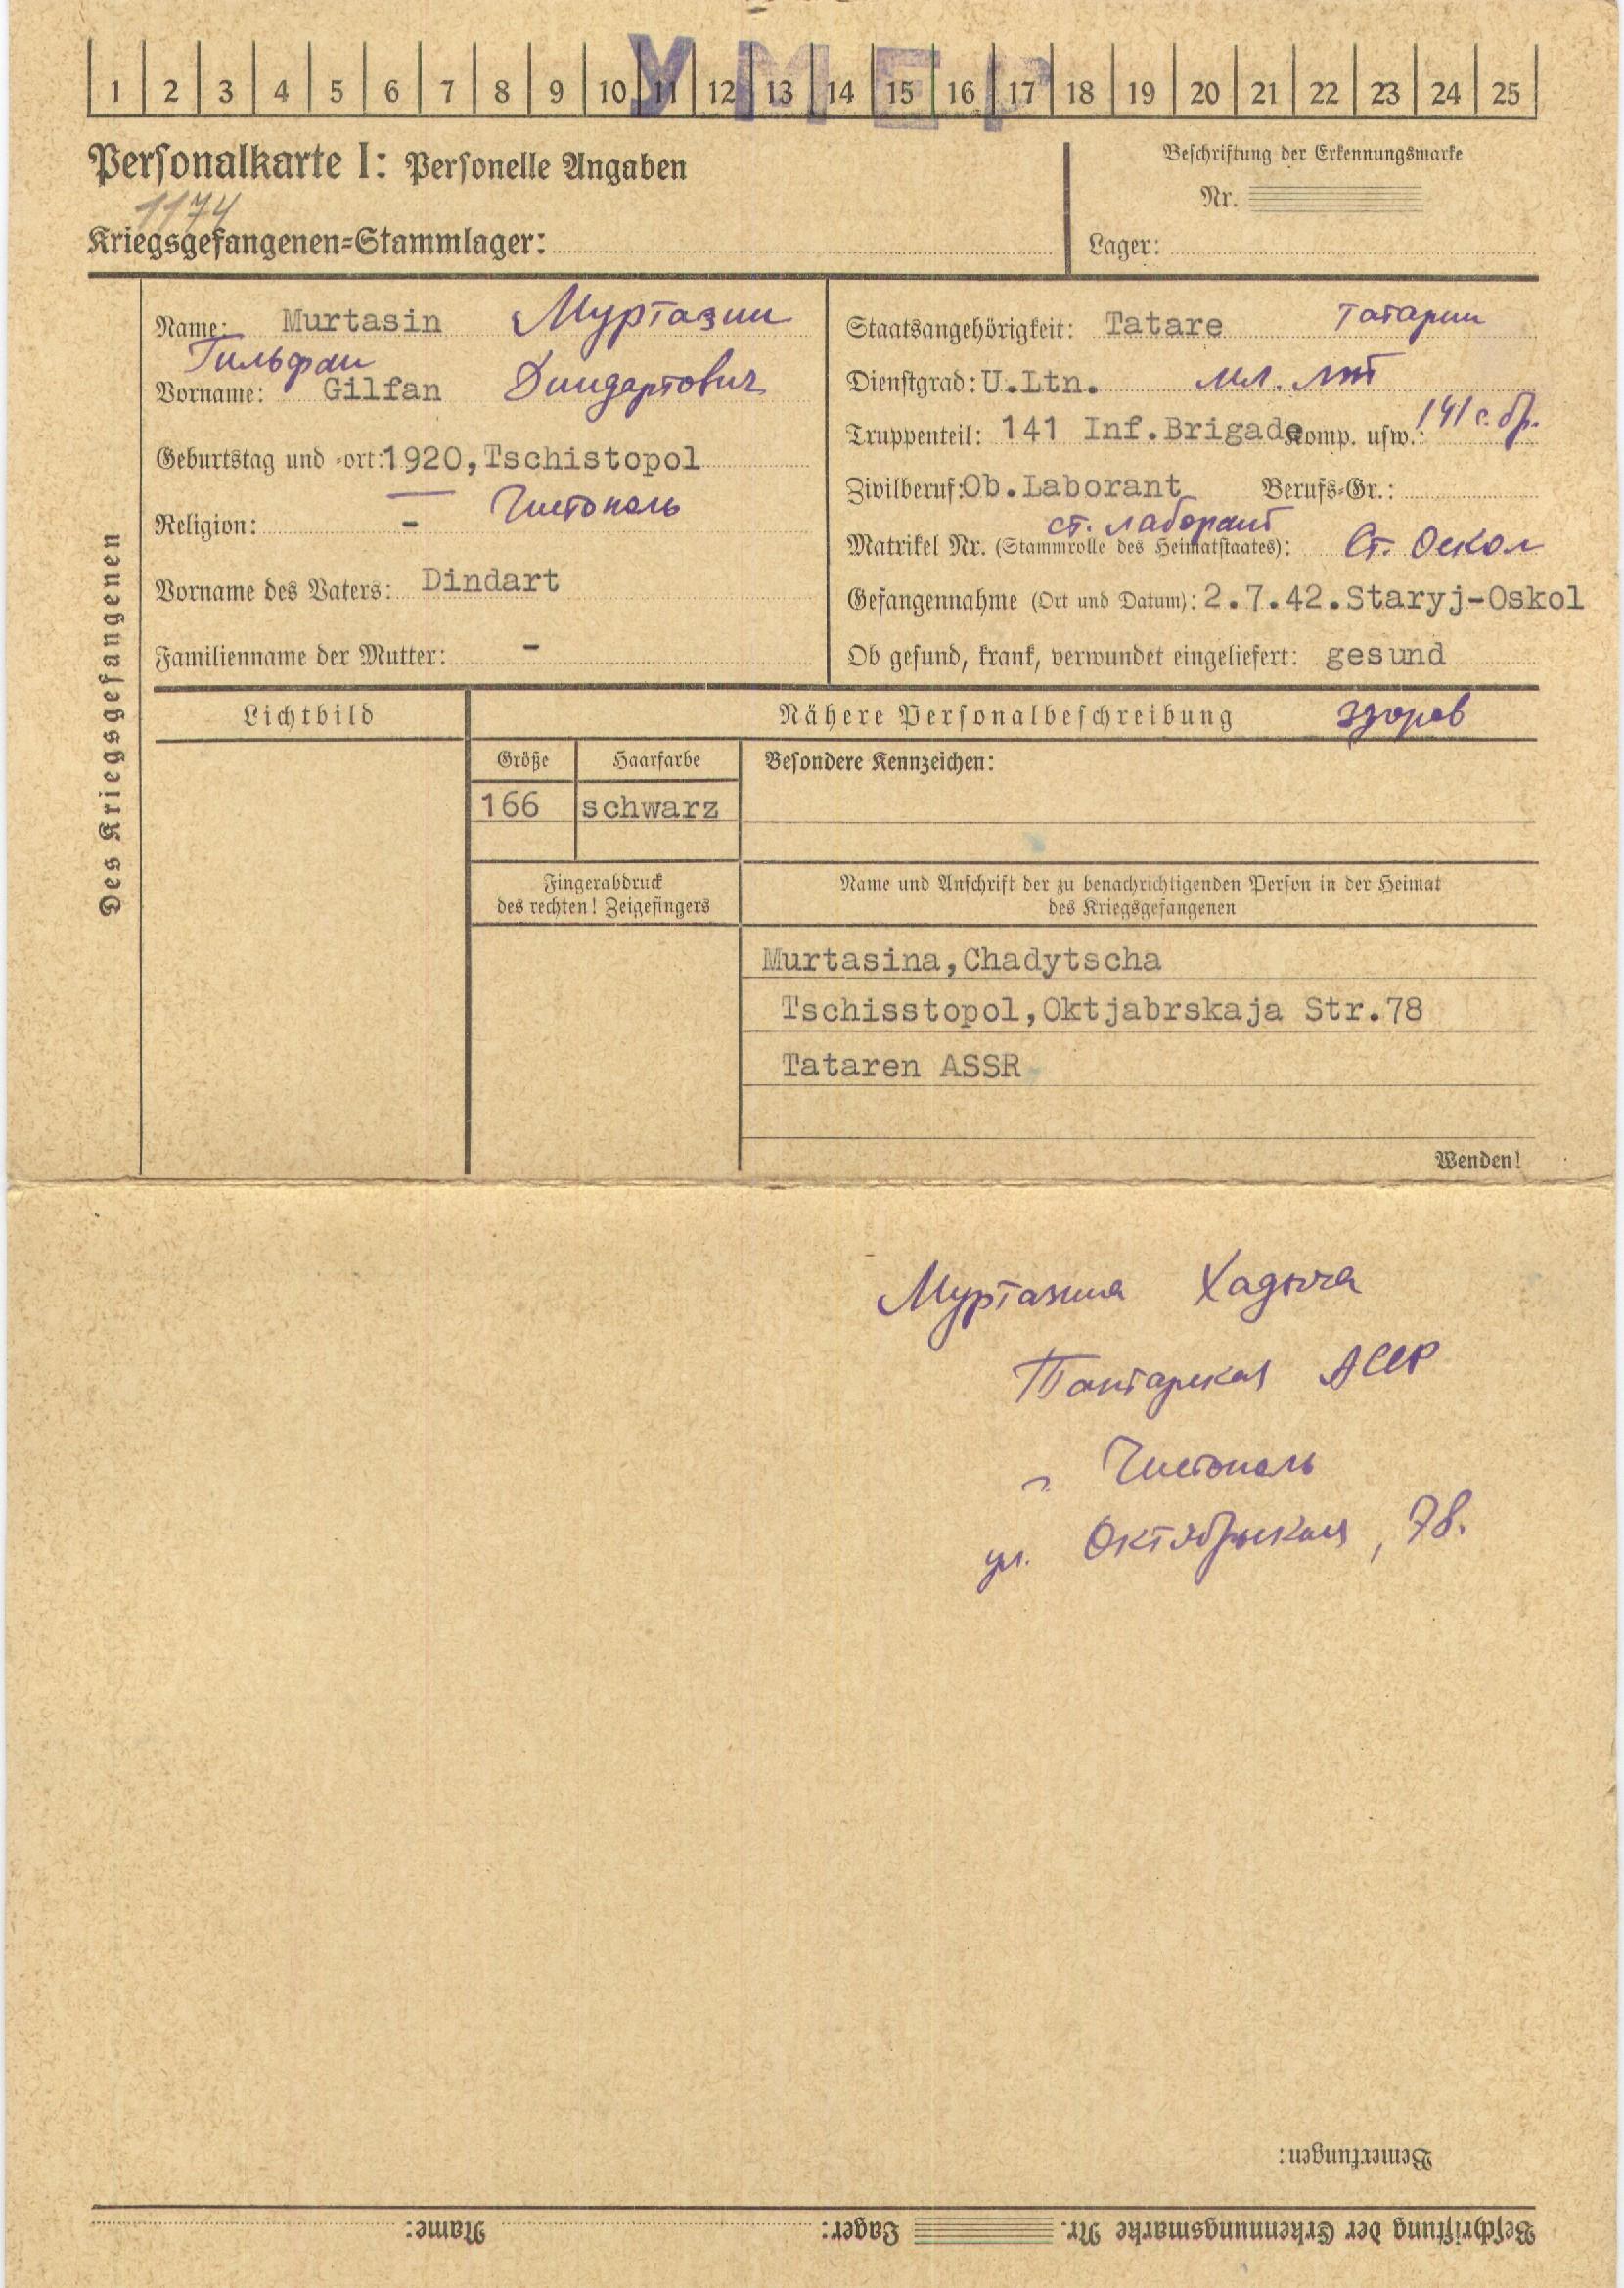 У М Е Р
1 2 3 4 5 6 7 8 9 10 11 12 13 14 15 16 17 18 19 20 21 22 23 24 25
Personalkarte I: Personelle Angaben
1174
Kriegsgefangenen=Stammlager:
Beschriftung der Erkennungsmarke
Nr.
Lager:
Des Kriegsgefangenen
Name: Murtasin Муртазин
Гильфан
Vorname: Gilfan Диндартович
Geburtstag und =ort: 1920, Tschistopol
Чистополь
Religion: -
Vorname des Vaters: Dindart
Familienname der Mutter: -
Staatsangehörigkeit: Tatare татарин
Dienstgrad: U.Ltn. мл. лт
Truppenteil: 141 Inf.Brigade Komp. usw.: 141 с. бр.
Zivilberuf: Ob.Laborant Berufs=Gr.:
ст. лаборант
Matrikel Nr. (Stammrolle des Heimatstaates): Ст. Оскол
Gefangennahme (Ort und Datum): 2.7.42.Staryj-Oskol
Ob gesund, krank, verwundet eingeliefert: gesund
Lichtbild
Nähere Personalbeschreibung здоров
Größe Haarfarbe Besondere Kennzeichen:
166 schwarz
Fingerabdruck
des rechten! Zeigefingers
Name und Anschrift der zu benachrichtigenden Person in der Heimat
des Kriegsgefangenen
Murtasina, Chadytscha
Tschisstopol, Oktjabrskaja Str.78
Tataren ASSR
Wenden!
Муртазина Хадыча
Татарская АССР
г. Чистополь
ул. Октябрьская, 78.
Bemerkungen:
Beschriftung der Erkennungsmarke Nr. Lager: Name: